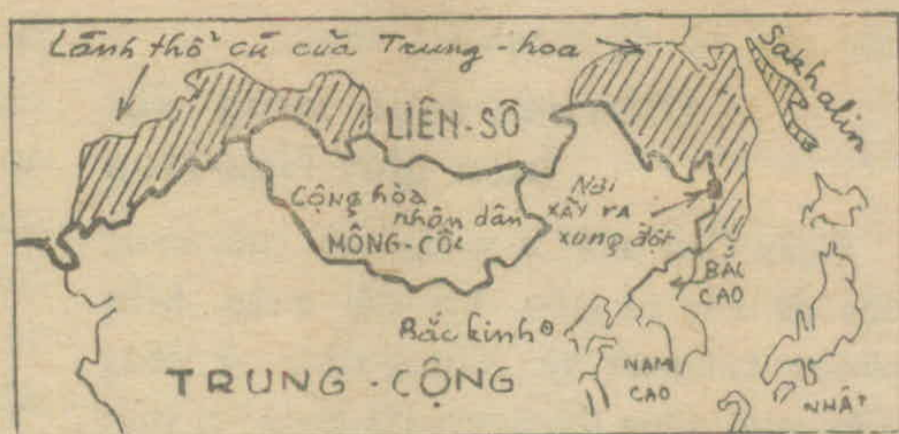 Lãnh thổ cũ của Trung-hoa
Sakhalin
LIÊN-SÔ
Cộng hòa
nhân dân
MÔNG-CỔ
Nơi
xẩy ra
xung đột
BẮC
CAO
Bắc kinh
NAM
CAO
TRUNG-CỘNG
NHẬT